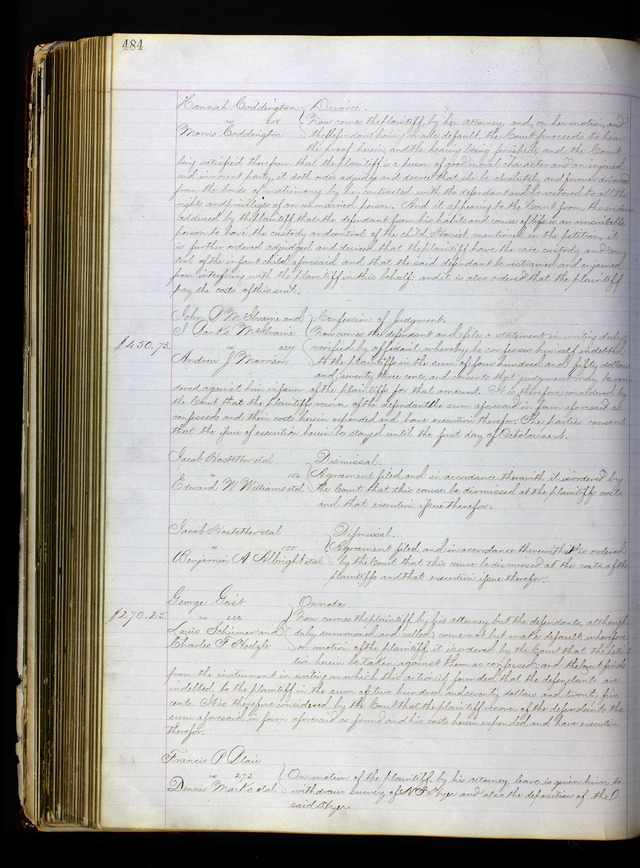 484
Hannah Coddington } Divorce.
vs
Morris Coddington
Now comes the plaintiff by her attorney and on her motion and
the defendant being called default, the Court proceeds to hear
the proof herein, and the hearing being finished, and the Court
being satisfied therefrom that the plaintiff is a person of good moral character and an injured
and innocent party, it doth order adjudge and decree that she be absolutely and forever divorced
from the bonds of matrimony by her contracted with the defendant and be restored to all the
rights and privileges of an unmarried person. And it appearing to the Court from the
adduced by the plaintiff that the defendant from his habits and course of life is an unsuitable
person to have the custody and control of the child Harriet, mentioned in the petition, it
is further ordered adjudged and decreed that the plaintiff have the sole custody and con-
trol of the infant child aforesaid, and that the said defendant be restrained and enjoined
from interfering with the plaintiff in this behalf: and it is also ordered that the plaintiff
pay the costs of this suit.
John P. McIlvaine and } Confession of judgment.
J. Banks McIlvaine
$450.73.
vs
Andrew J Morrison
Now comes the defendant and files a statement in writing duly
verified by affidavit whereby he confesses himself indebted
to the plaintiffs in the sum of four hundred and fifty dollars
and seventy three cents and consents that judgment may be ren-
dered against him in favor of the plaintiffs for that amount. It is therefore considered by
the Court that the plaintiffs recover of the defendant the sum aforesaid in form aforesaid as
confessed and their costs herein expended and have execution therefor. The parties consent
that the issue of execution herein be stayed until the first day of October next.
Jacob Hostetter et al } Dismissal.
vs
Edward W Williams et al
Agreement filed and in accordance therewith it is ordered by
the Court that this cause be dismissed at the plaintiffs costs
and that execution issue therefor.
Jacob Hostetter et al } Dismissal.
vs
Benjamin A Albright et al
Agreement filed and in accordance therewith it is ordered
by the Court that this cause be dismissed at the costs of the
plaintiffs and that execution issue therefor.
George Geist } On notes.
$270.25.
vs
Louis Schirmer and
Charles F
Now comes the plaintiff by his attorney but the defendants, although
duly summoned and called, come not but make default wherefore
on motion of the plaintiff it is ordered by the Court that the peti-
tion herein be taken against them as confessed and the Court finds
from the instrument in writing on which the action is founded that the defendants are
indebted to the plaintiff in the sum of two hundred and seventy dollars and twenty five
cents. It is therefore considered by the Court that the plaintiff recover of the defendants the
sum aforesaid in form aforesaid as found and his costs herein expended and have execution
therefor.
Francis P Blair
vs 272
Dennis Marks et al
} On motion of the plaintiff, by his attorney leave is given him to
withdraw survey of and also the deposition of the
said